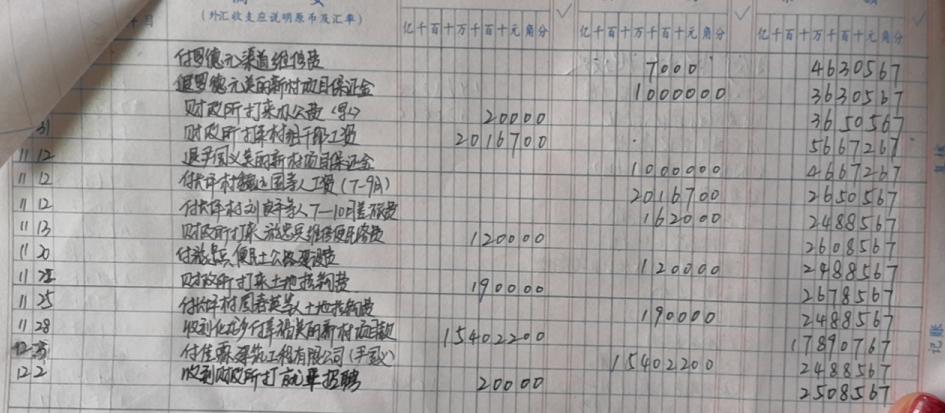 (外汇收支应说明原币及汇率)
亿千百十万千百十元角分 亿千百十万千百十元角分 亿千百十万千百十元角分
付罗德元渠道维修费 7000 4630567
退罗德元美的新村项目保证金 1000000 3630567
财政所打来办公费 20000 3650567
31 财政所打来村组干部工资 2016700 5667267
11 12 退于国义美的新村项目保证金 1000000 4667267
11 12 付大坪村 国等人工资(7-9月) 2016700 2650567
11 12 付大坪村刘良平等人7—10月差旅费 162000 2488567
11 13 财政所打来 维修便民路费 120000 2608567
11 20 付 便民公路建设费 120000 2488567
11 25 财政所打来土地 费 190000 2678567
11 25 付大坪村周春英等人土地 费 190000 2488567
11 28 收到 美的新村项目款 15402200 17890767
付佳霖建筑工程有限公司 15402200 2488567
12 2 收到财政所打 招聘 20000 2508567